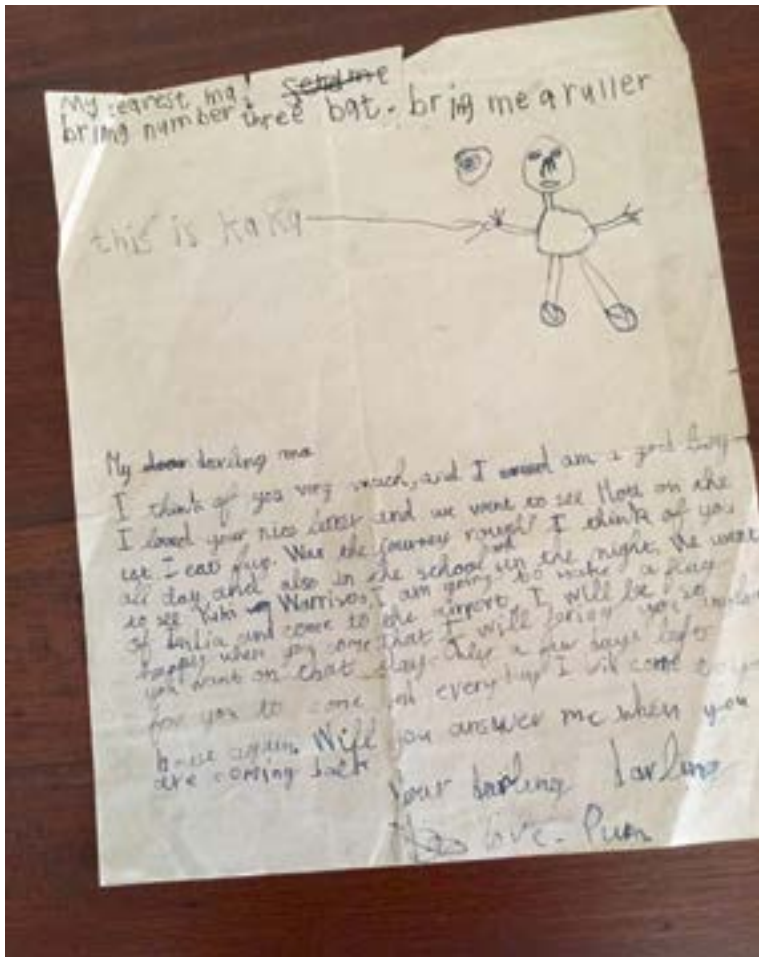 My Dearest ma, send me
bring number three bat. bring me a ruller
this is kaka
My dear darling ma
I think of you very much, and I am a good boy
I loved your nice letter and we went to see Hoti on the
I eat fup. Was the journey rough? I think of you
all day and also in the school and in the night. We went
to see Warriros, I am going to make a flag
of India and come to the airport, I will be so
happy when you come that I will you
you want on that day. Only a few days left
for you to come and every day I will come to your
house again. Will you answer me when you
are coming back
your darling darling
love. Pum